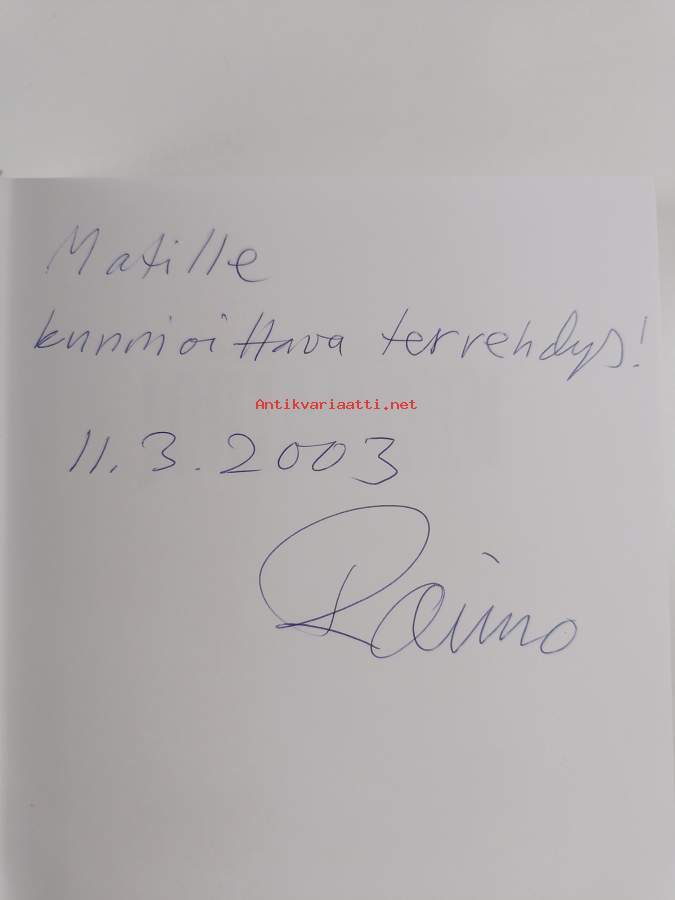 Matille
kunnioittava tervehdys!
Antikvariaatti.net
11.3.2003
Raimo